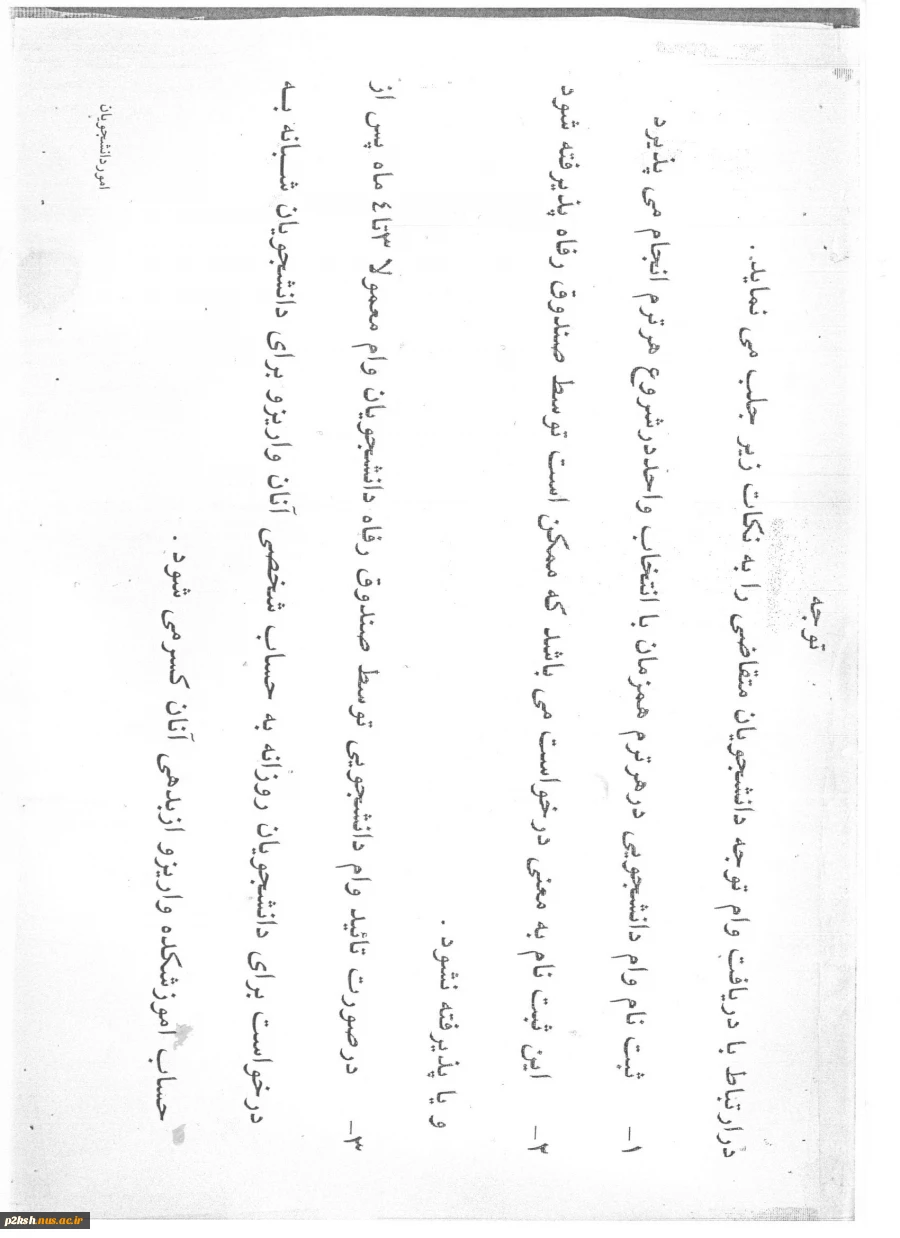 توجه
درارتباط با دریافت وام توجه دانشجویان متقاضی را به نکات زیر جلب می نماید..
۱- ثبت نام وام دانشجویی درهرترم همزمان با انتخاب واحددرشروع هرترم انجام می پذیرد
۲- این ثبت نام به معنی درخواست می باشد که ممکن است توسط صندوق رفاه پذیرفته شود
و یا پذیرفته نشود .
۳- درصورت تائید وام دانشجویی توسط صندوق رفاه دانشجویان وام معمولا ۳تا٤ ماه پس از
درخواست برای دانشجویان روزانه به حساب شخصی آنان واریزو برای دانشجویان شبانه به
حساب اموزشکده واریزو ازبدهی آنان کسرمی شود .
اموردانشجویان
p2ksh.nus.ac.ir